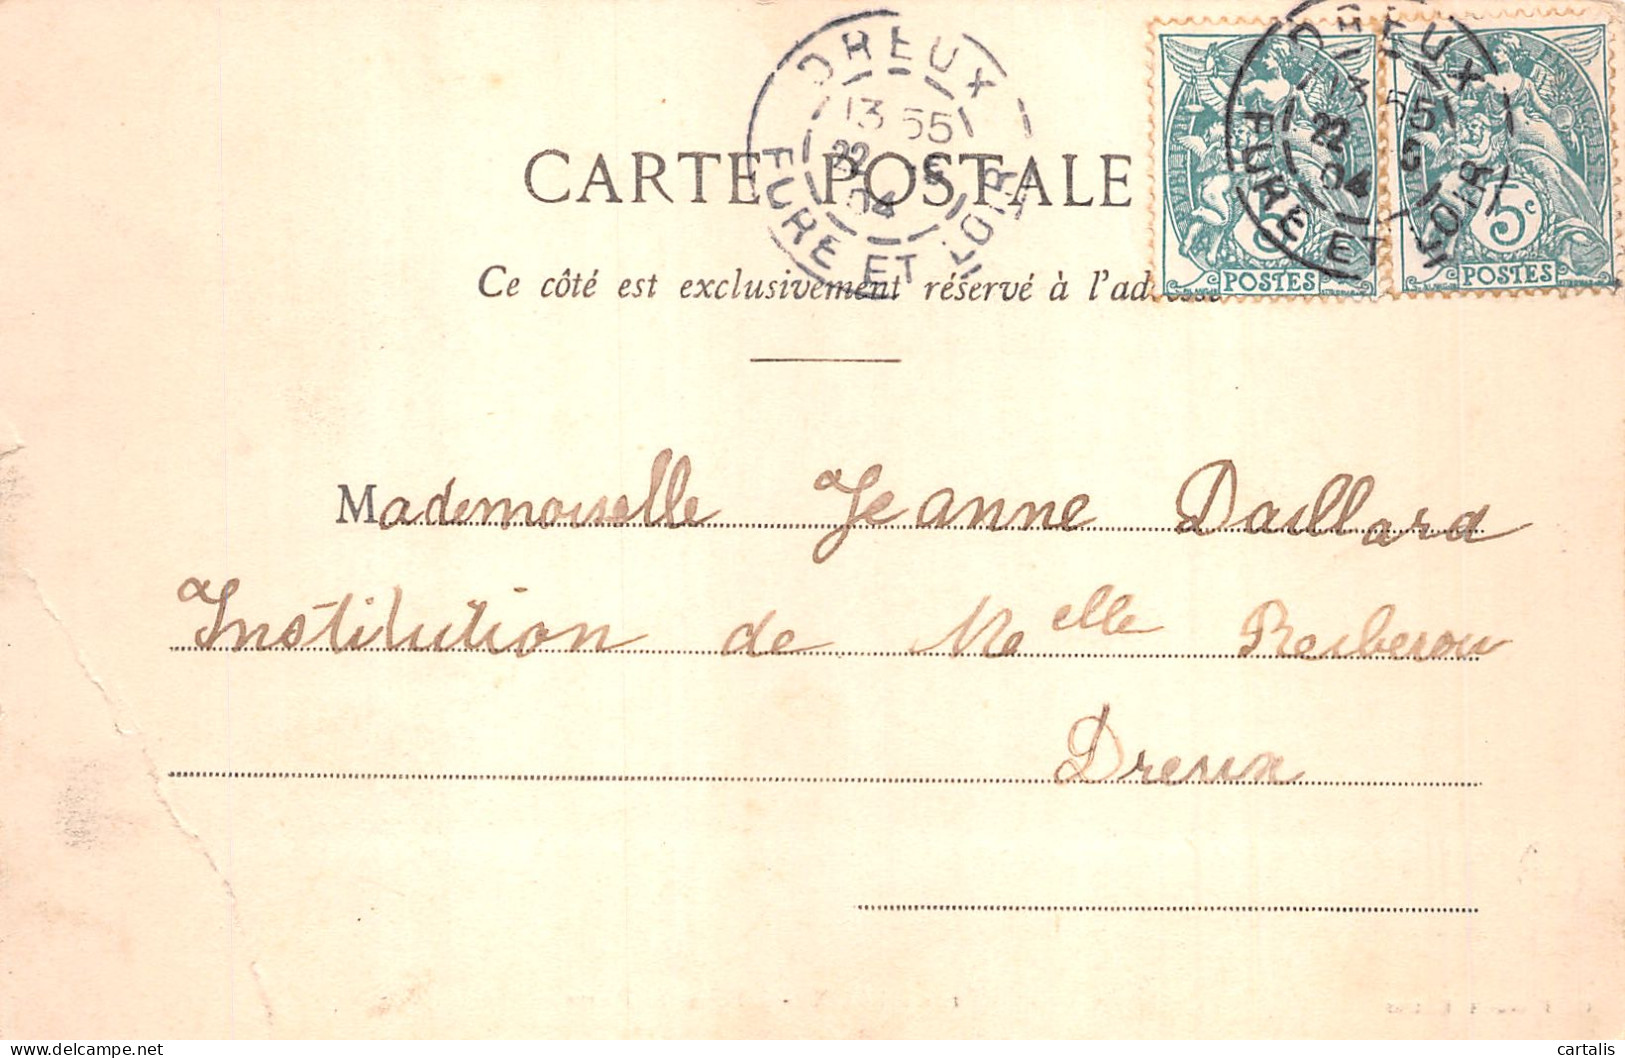 DREUX
13 55
22
04
EURE ET LOIR
DREUX
13 55
22
04
EURE ET LOIR
5c
POSTES
FRANÇAISE
5c
POSTES
CARTE POSTALE
Ce côté est exclusivement réservé à l'adresse
Mademoiselle Jeanne Daillard
Institution de Melle
Dreux
cartalis